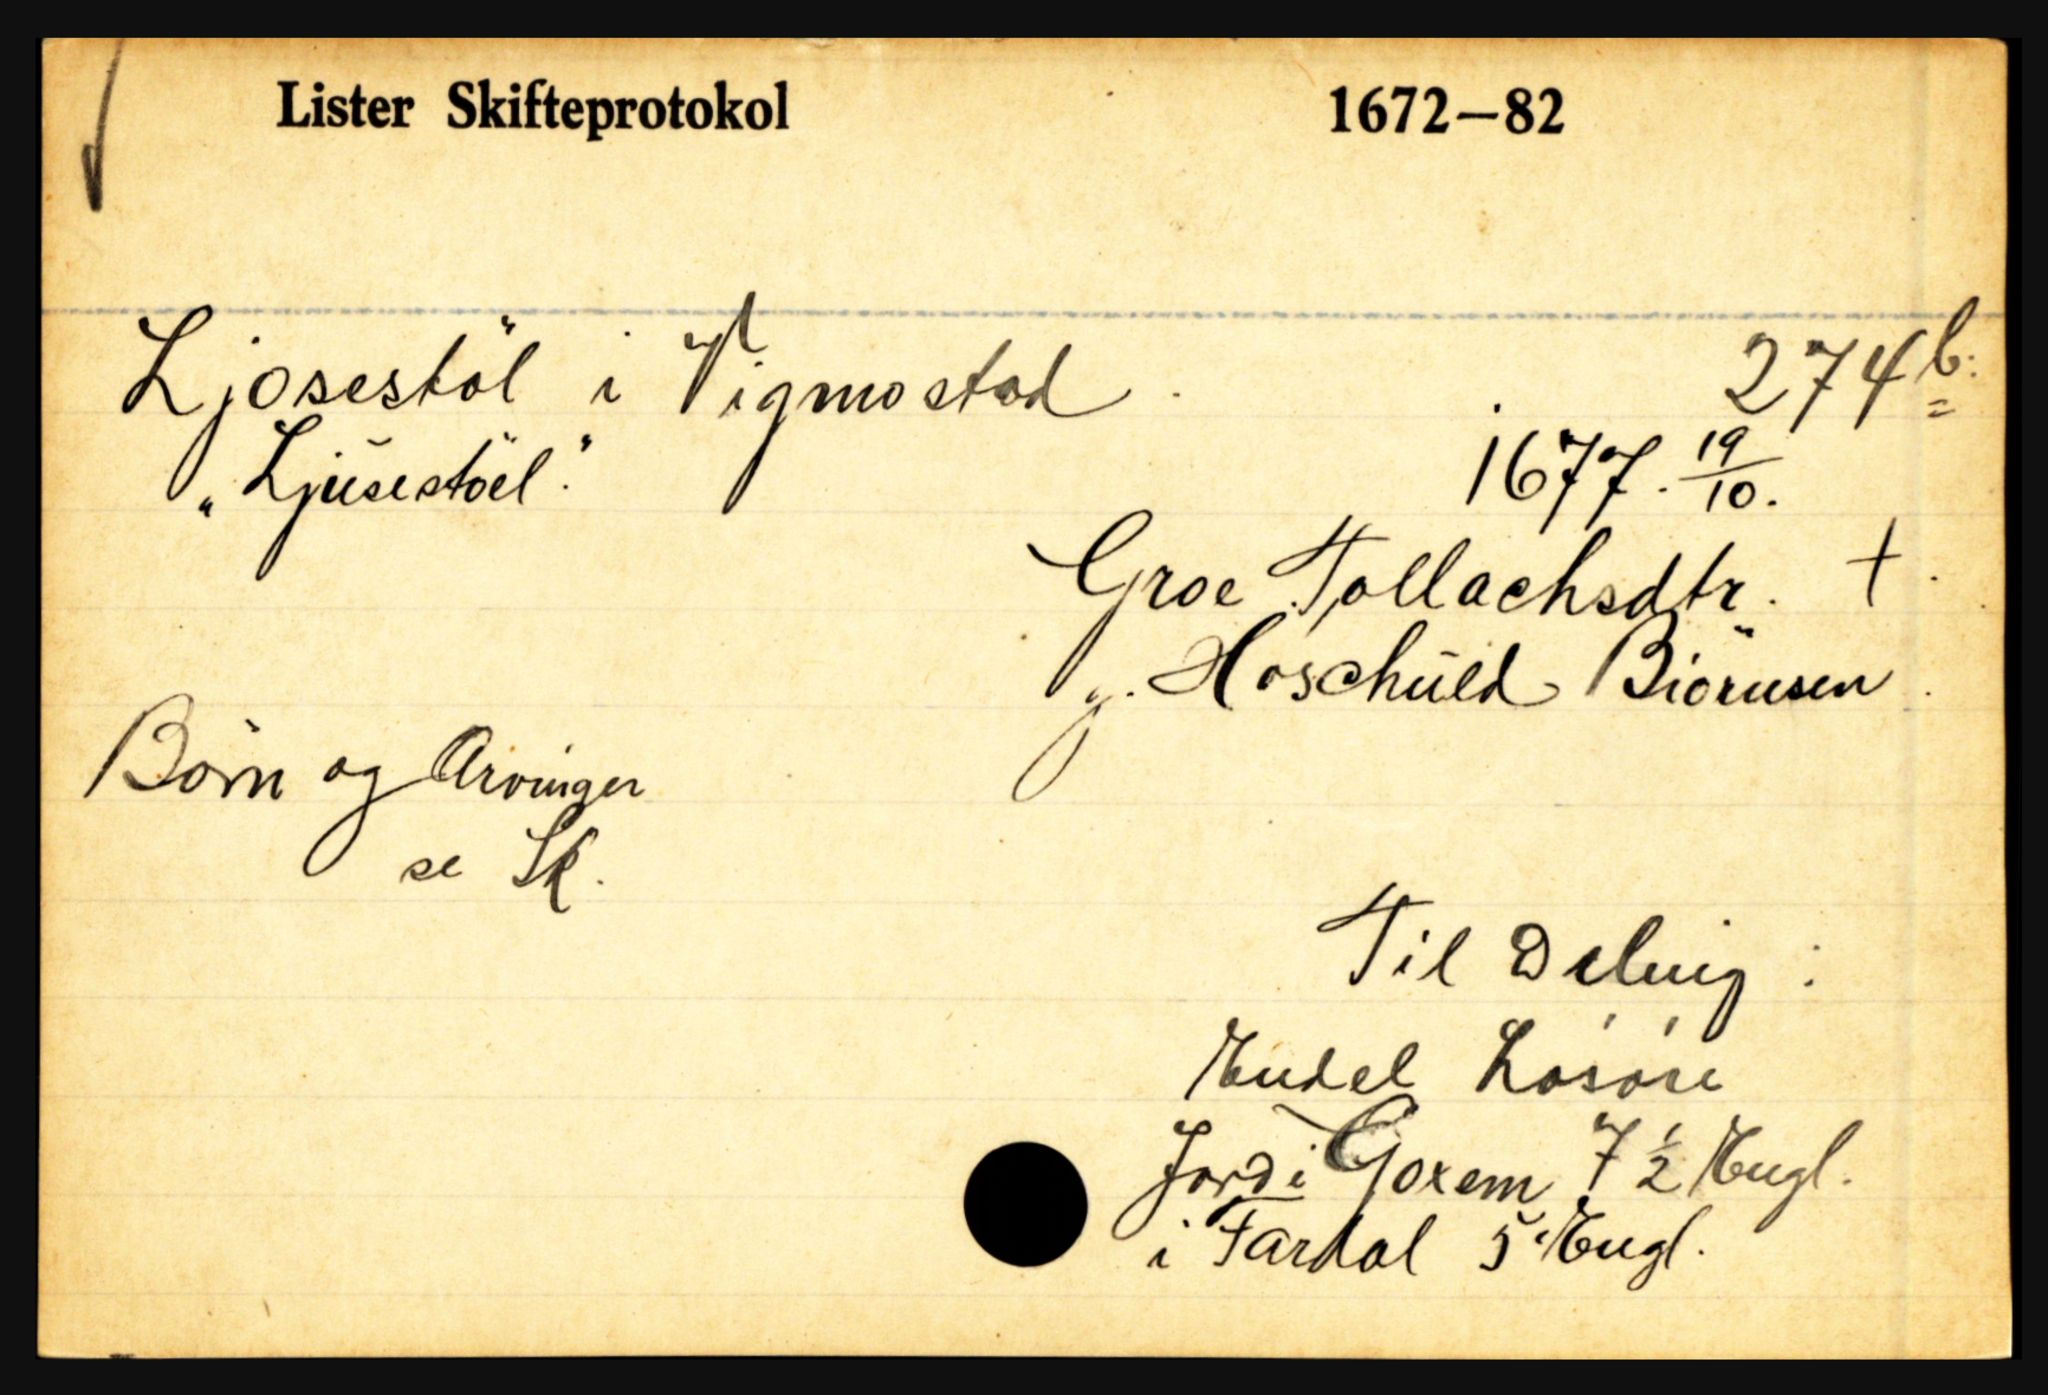 Lister Skifteprotokol 1672—82
Ljosestöl i Vigmostad. 274 b:
„Ljŭsestöel." 1677. 19/10.
Groe Tollachsdtr. †.
g. Hoschŭld Biörnsen.
Börn og Arvinger
se Sk.
Til Deling:
Endel Lösöre
Jord i Goxem 7 1/2 Engl.
i Fardal 5 Engl.